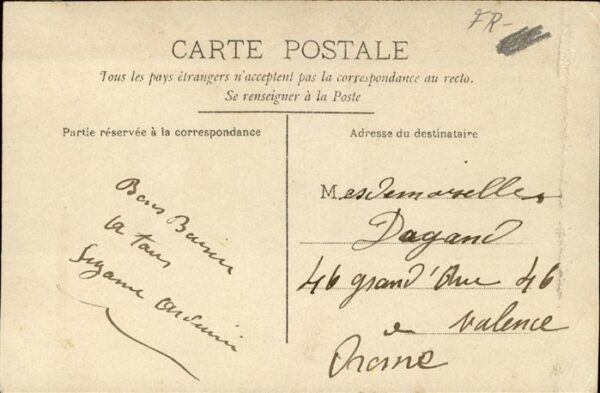 FR-
CARTE POSTALE
Tous les pays étrangers n'acceptent pas la correspondance au recto.
Se renseigner à la Poste
Partie réservée à la correspondance
Adresse du destinataire
Bons Baisers
à tous
Suzanne
Mesdemoiselles
Dagand
46 grand'Rue 46
à Valence
Drome